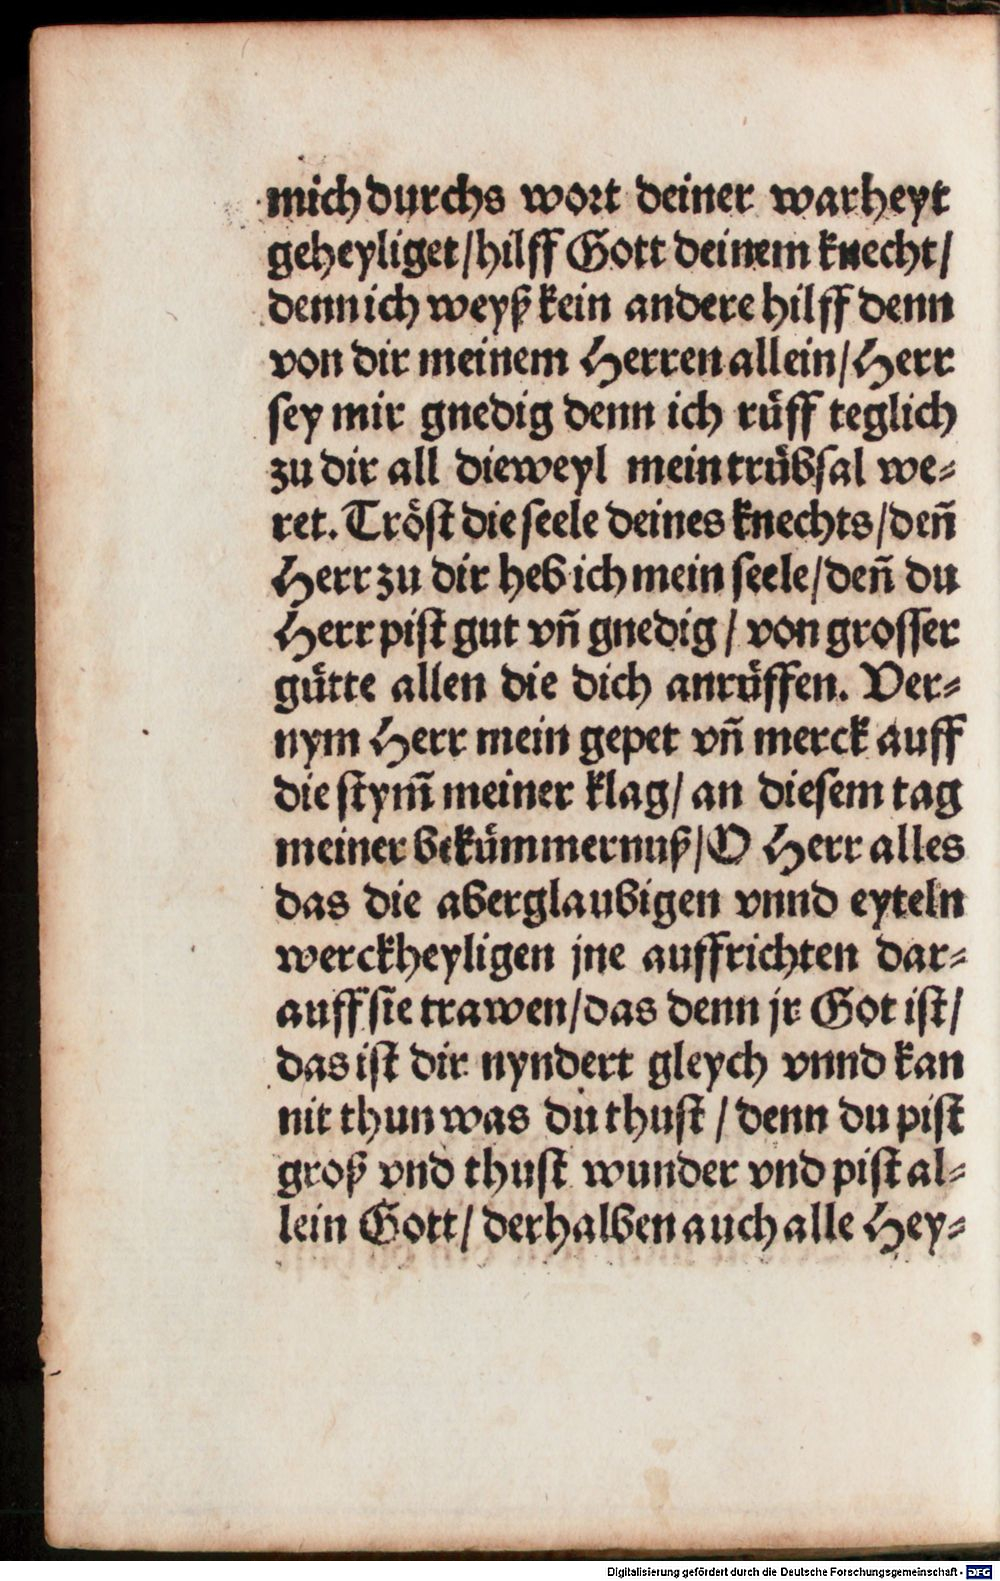 mich durchs wort deiner warheyt
geheyliget/hilff Gott deinem knecht/
denn ich weyß kein andere hilff denn
von dir meinem Herren allein/Herr
sey mir gnedig denn ich rüff teglich
zu dir all dieweyl mein trübsal we⸗
ret. Tröst die seele deines knechts/deñ
Herr zu dir heb ich mein seele/deñ du
Herr pist gut vñ gnedig/ von grosser
gütte allen die dich anrüffen. Ver⸗
nym Herr mein gepet vñ merck auff
die stym̃ meiner klag/ an diesem tag
meiner bekümmernuß/O Herr alles
das die aberglaubigen vnnd eyteln
werckheyligen jne auffrichten dar⸗
auff sie trawen/das denn jr Got ist/
das ist dir nyndert gleych vnnd kan
nit thun was du thust / denn du pist
groß vnd thust wunder vnd pist al⸗
lein Gott/ derhalben auch alle Hey⸗
Digitalisierung gefördert durch die Deutsche Forschungsgemeinschaft - DFG